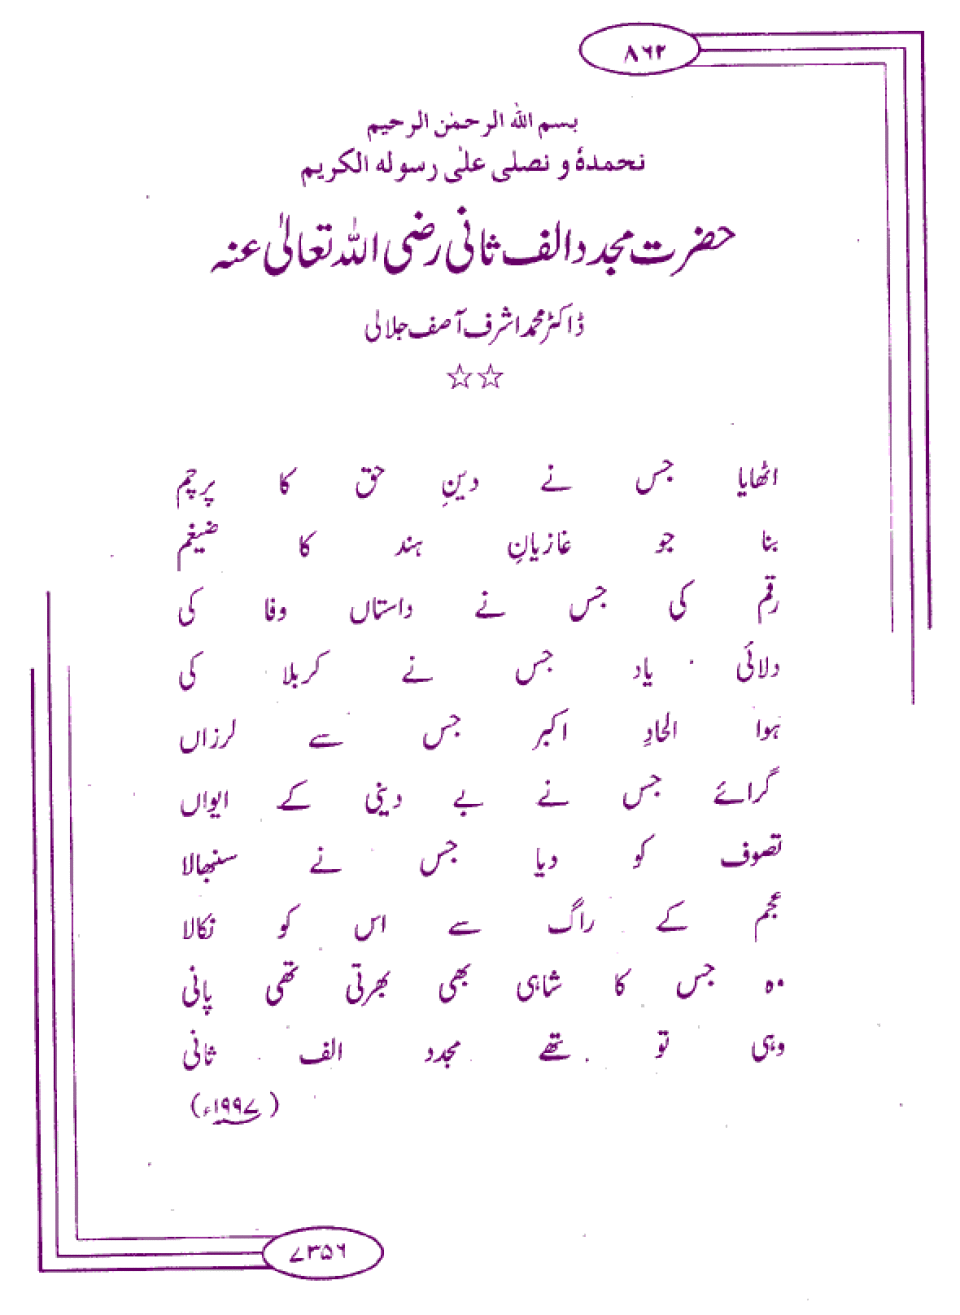 ۸۶۲
بسم الله الرحمٰن الرحيم
نحمدهٗ و نصلی علٰی رسوله الکریم
حضرت مجدد الف ثانی رضی اللہ تعالیٰ عنہ
ڈاکٹر محمد اشرف آصف جلالی
☆☆
اٹھایا جس نے دینِ حق کا پرچم
بنا جو غازیانِ ہند کا ضیغم
رقم کی جس نے داستاں وفا کی
دلائی یاد جس نے کربلا کی
ہوا الحادِ اکبر جس سے لرزاں
گرائے جس نے بے دینی کے ایواں
تصوف کو دیا جس نے سنبھالا
عجم کے راگ سے اس کو نکالا
وہ جس کا شاہی بھی بھرتی تھی پانی
وہی تو تھے مجدد الف ثانی
(۱۹۹۷ء)
۷۳۵۶